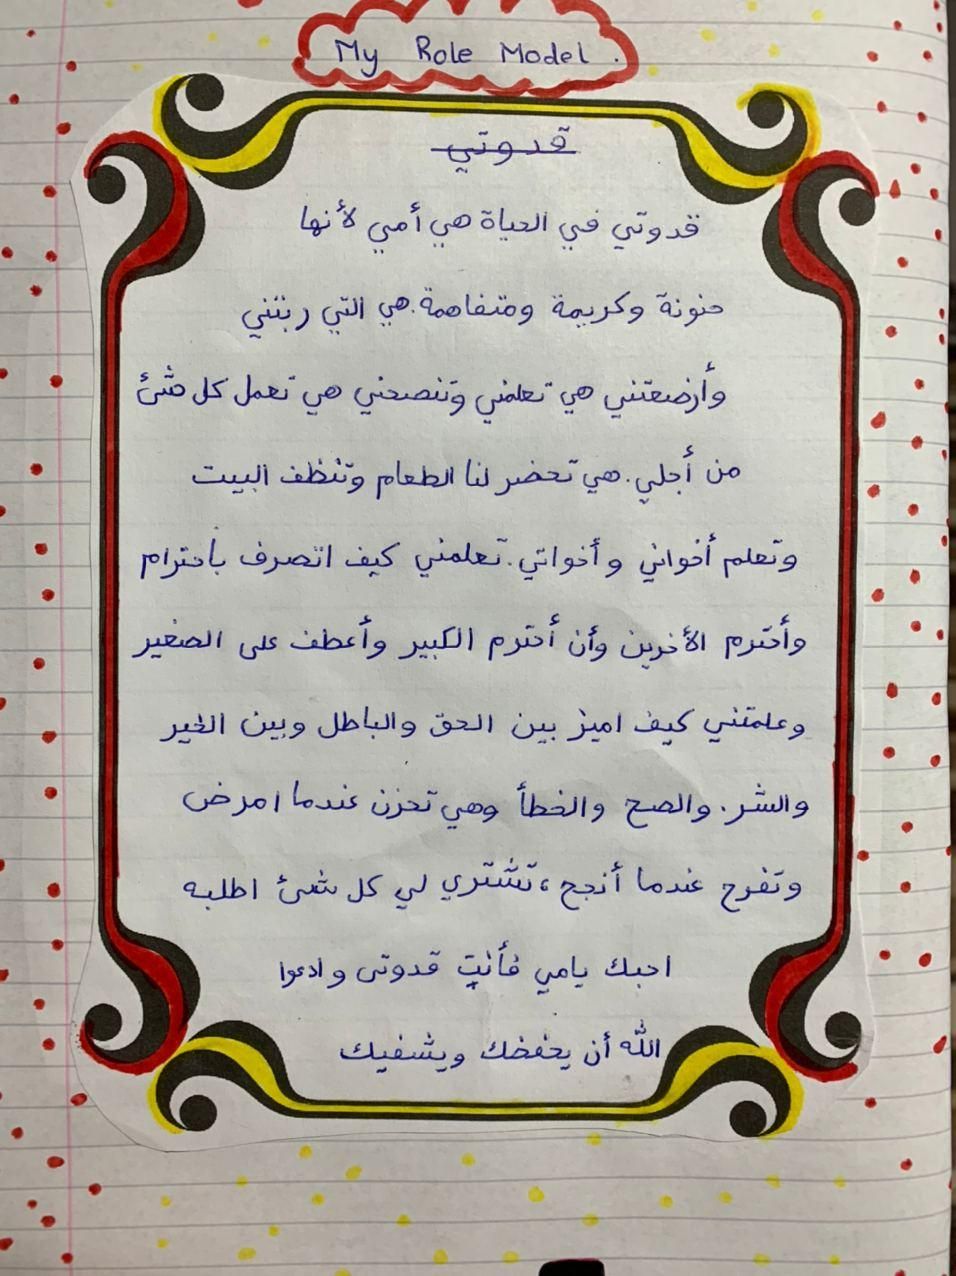 My Role Model .
قدوتي
قدوتي في الحياة هي أمي لأنها
حنونة وكريمة ومتفاهمة. هي التي ربتني
وأرضعتني هي تعلمني وتنصحني هي تعمل كل شئ
من أجلي. هي تحضر لنا الطعام وتنظف البيت
وتعلم أخواني وأخواتي. تعلمني كيف اتصرف بأحترام
وأحترم الأخرين وأن أحترم الكبير وأعطف على الصغير
وعلمتني كيف اميز بين الحق والباطل وبين الخير
والشر. والصح والخطأ وهي تحزن عندما امرض
وتفرح عندما أنجح، تشتري لي كل شئ اطلبه
احبك يامي فأنتِ قدوتى وادعوا
الله أن يحفظك ويشفيك